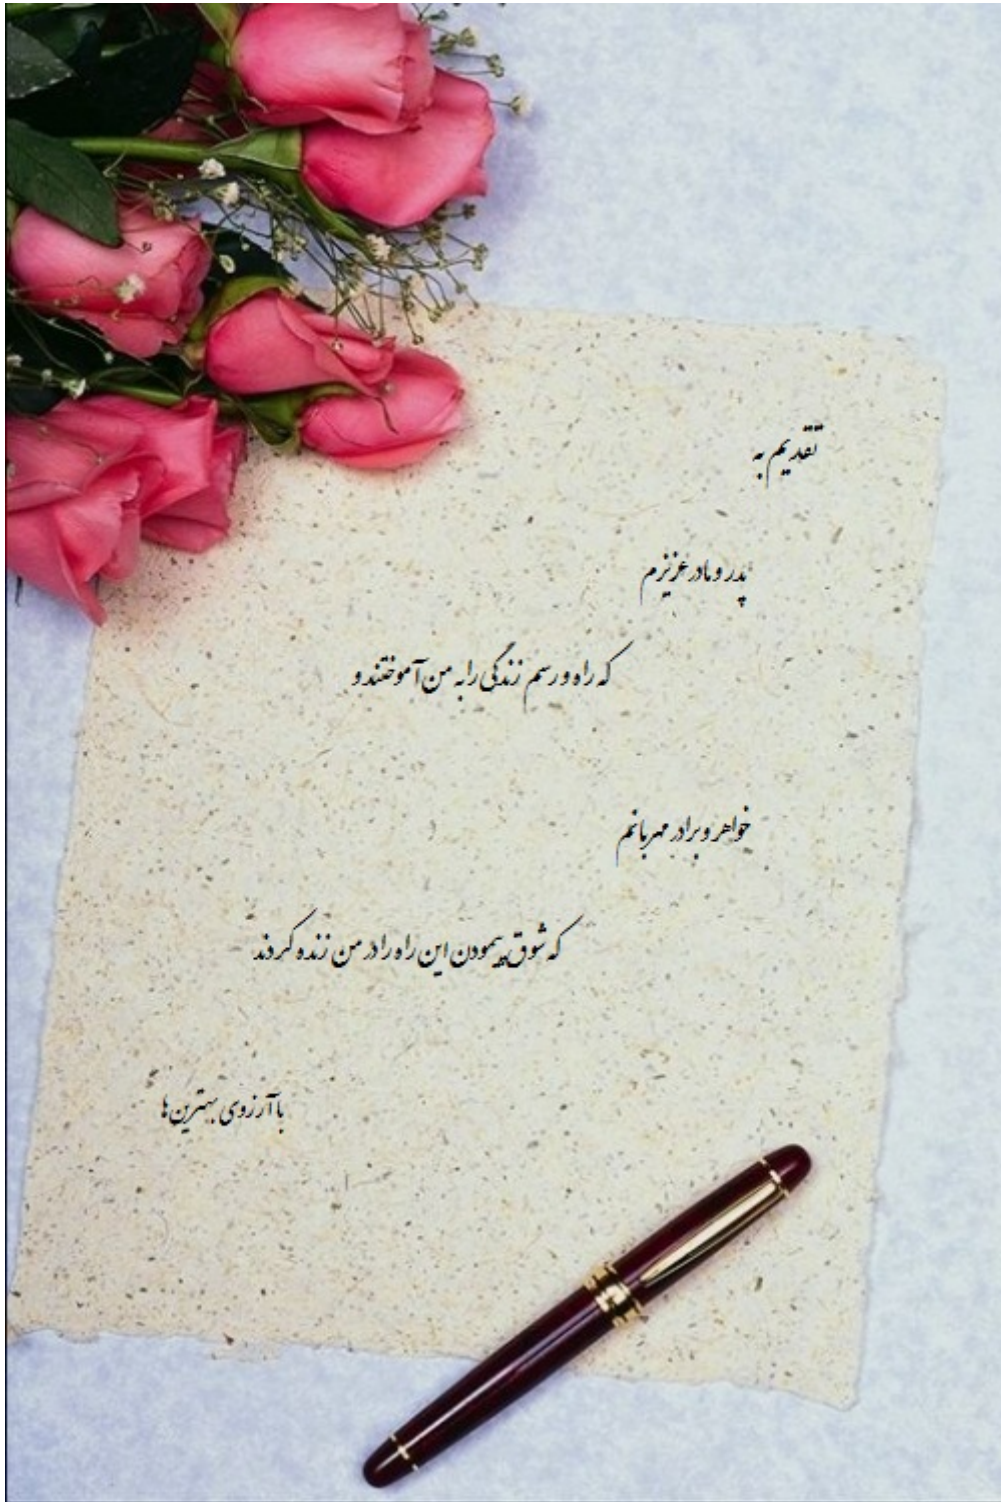 تقدیم به
پدر و مادر عزیزم
که راه و رسم زندگی را به من آموختند و
خواهر و برادر مهربانم
که شوق پیمودن این راه را در من زنده کردند
با آرزوی بهترین ها